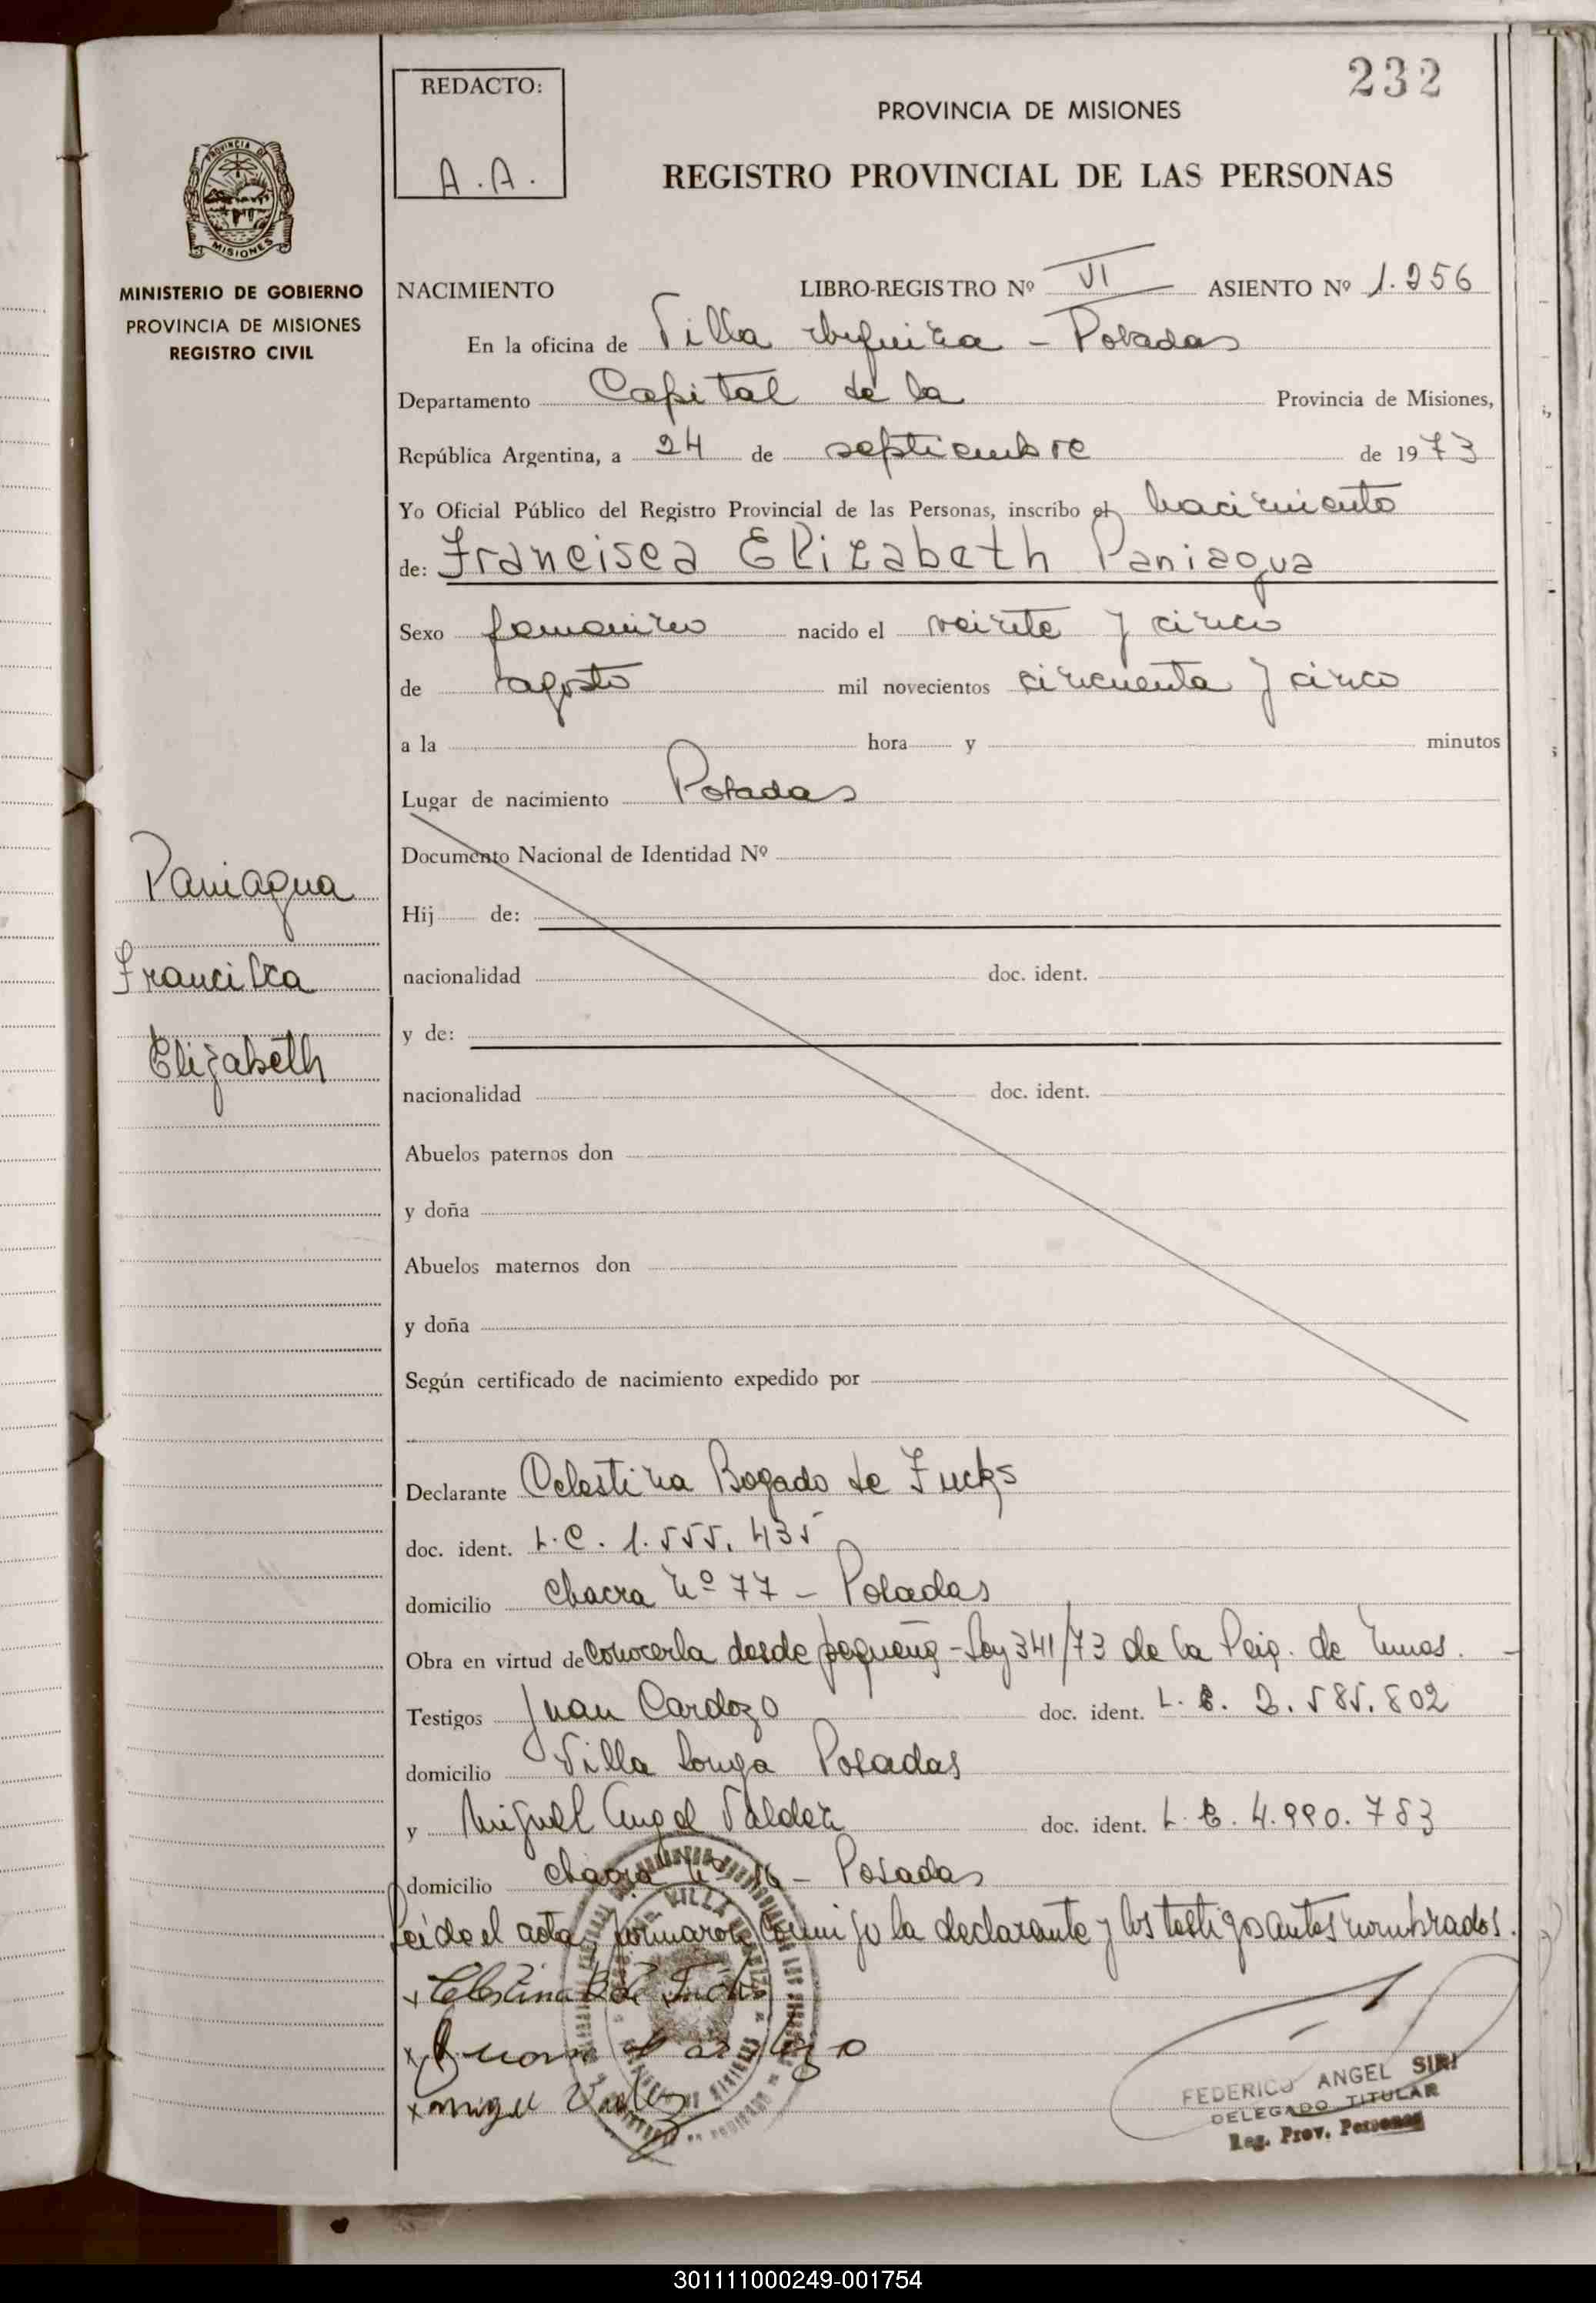 232
REDACTO:
A.A.
PROVINCIA DE MISIONES
REGISTRO PROVINCIAL DE LAS PERSONAS
PROVINCIA DE
MISIONES
MINISTERIO DE GOBIERNO
PROVINCIA DE MISIONES
REGISTRO CIVIL
NACIMIENTO LIBRO-REGISTRO Nº VI ASIENTO Nº 1.256
En la oficina de Villa Urquiza - Posadas
Departamento Capital de la Provincia de Misiones,
República Argentina, a 24 de septiembre de 1973
Yo Oficial Público del Registro Provincial de las Personas, inscribo el nacimiento
de: Francisca Elizabeth Paniagua
Sexo femenino nacido el veinte y cinco
de agosto mil novecientos cincuenta y cinco
a la hora y minutos
Lugar de nacimiento Posadas
Documento Nacional de Identidad Nº
Hij de:
nacionalidad doc. ident.
y de:
nacionalidad doc. ident.
Abuelos paternos don
y doña
Abuelos maternos don
y doña
Según certificado de nacimiento expedido por
Paniagua
Francisca
Elizabeth
Declarante Celestina Bogado de Fucks
doc. ident. L.C. 1.555.435
domicilio Chacra Nº 77 - Posadas
Obra en virtud de conocerla desde pequeña - Ley 341/73 de la
Testigos Juan Cardozo doc. ident. L.E. 2.585.802
domicilio Villa Longa Posadas
y Miguel Angel Valdez doc. ident. L.E. 4.990.783
domicilio Chacra - Posadas
Leido el acta, firmaron conmigo la declarante y los testigos antes nombrados.
x Celestina B de
x Juan Cardozo
x Miguel Valdez
FEDERICO ANGEL SIRI
DELEGADO TITULAR
Reg. Prov. Personas
301111000249-001754